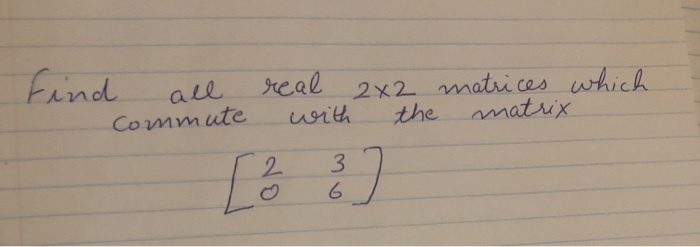 Find all real 2×2 matrices which
commute with the matrix
[2 3
0 6]